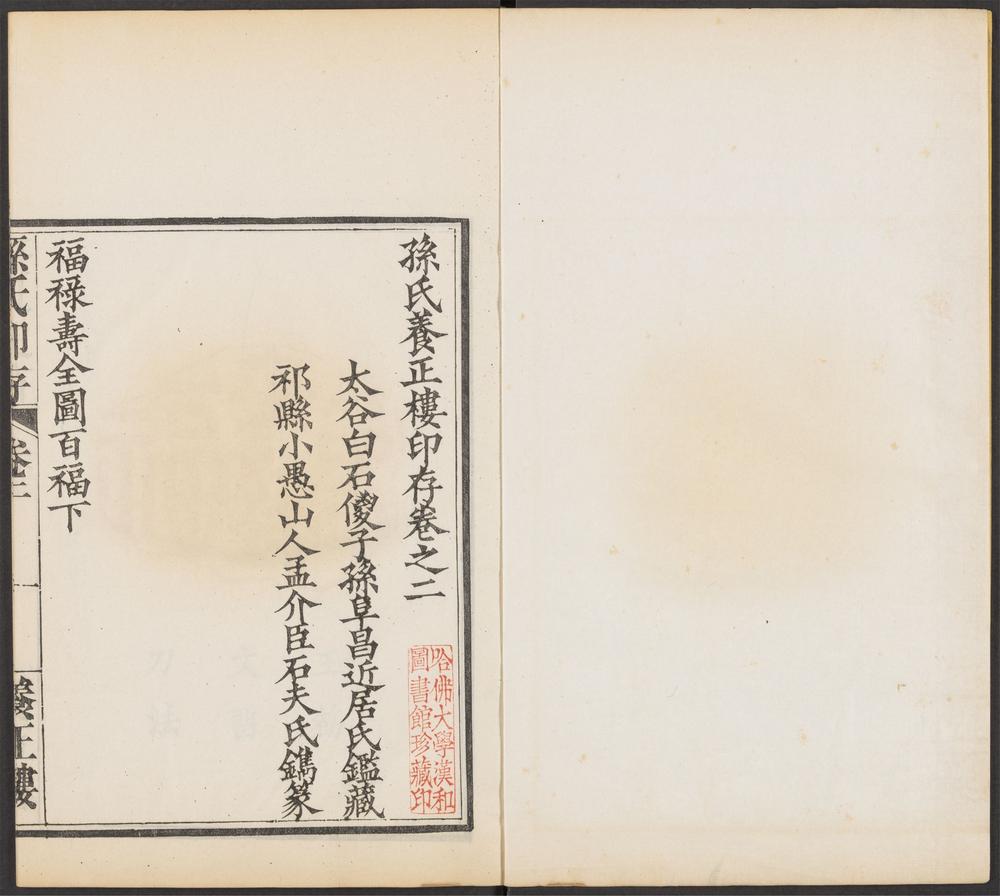 孫氏養正樓印存卷之二
太谷白石傻子孫阜昌近居氏鑑藏
祁縣小愚山人孟介臣石夫氏鐫篆
哈佛大學漢和
圖書館珍藏印
福祿壽全圖百福下
孫氏印存
卷二
養正樓